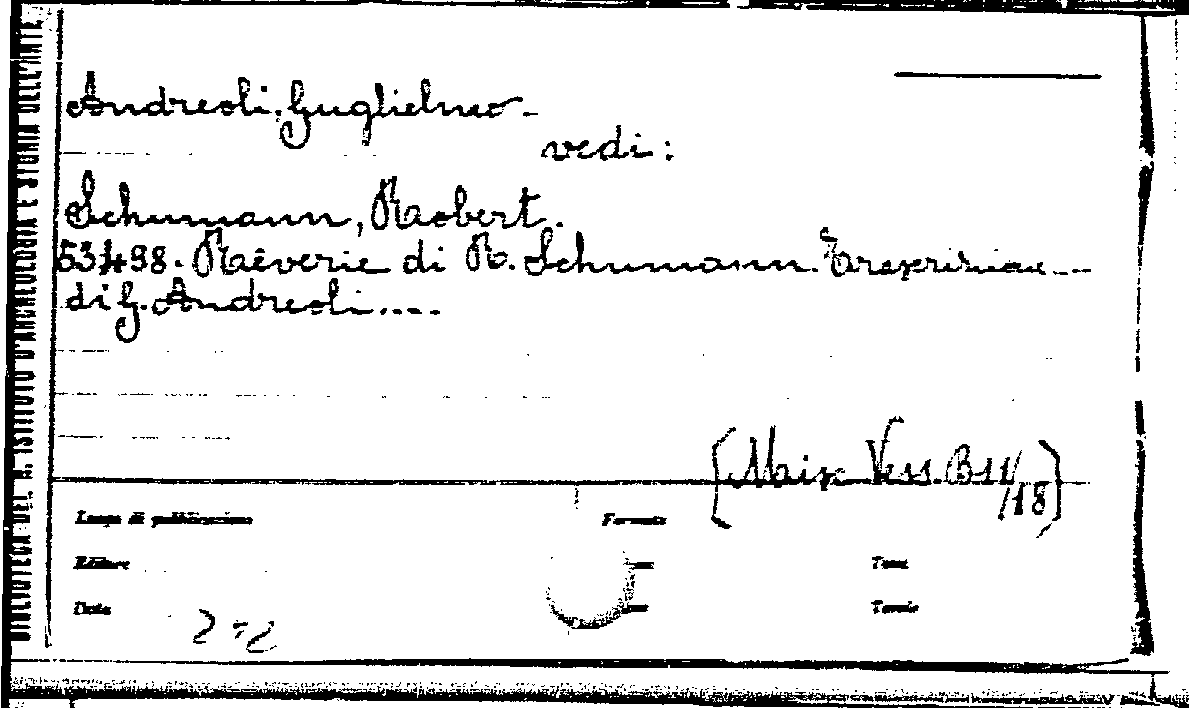 BIBLIOTECA DEL R. ISTITUTO D'ARCHEOLOGIA E STORIA DELL'ARTE
Andreoli, Guglielmo -
vedi:
Schumann, Robert.
53498. Rêverie di R. Schumann.
di G. Andreoli....
[Misc. Vess. B 11/18]
Luogo di pubblicazione Formato
Editore Tomi
Data Tavole